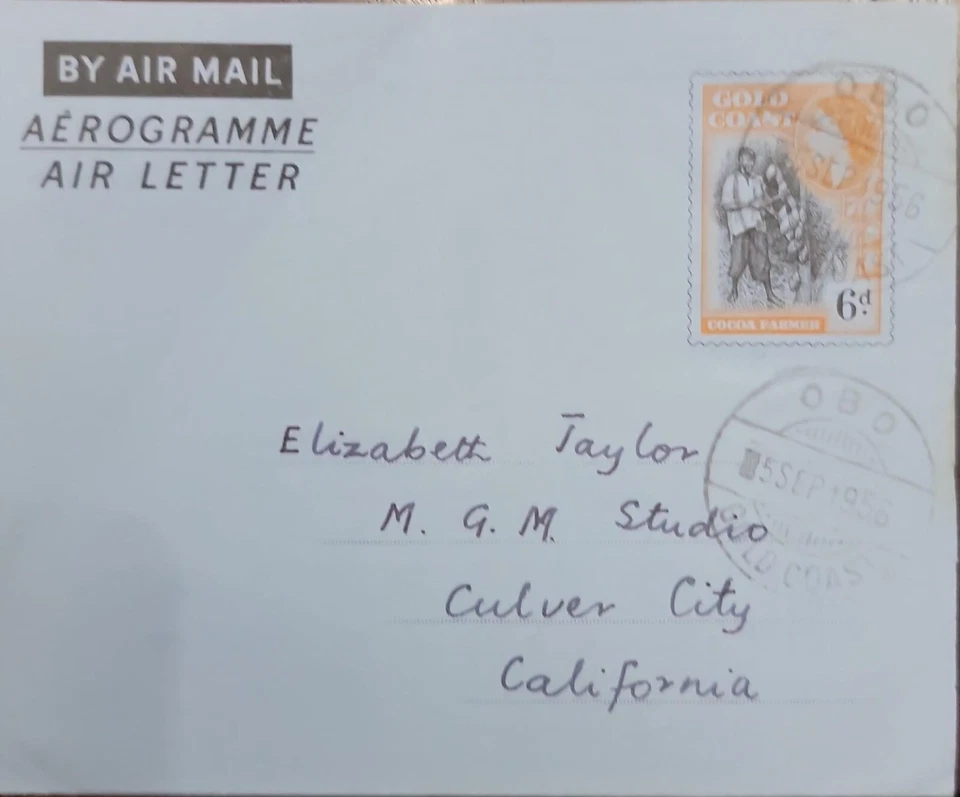 BY AIR MAIL
AÉROGRAMME
AIR LETTER
GOLD
COAST
COCOA FARMER
6d.
OBO
SEP 1956
Elizabeth Taylor
M. G. M. Studio
Culver City
California
OBO
5SEP1956
GOLD COAST